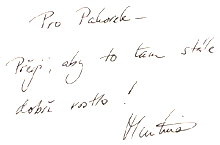 Pro Pahorek –
Přeji, aby to tam stále
dobře rostlo!
Martina